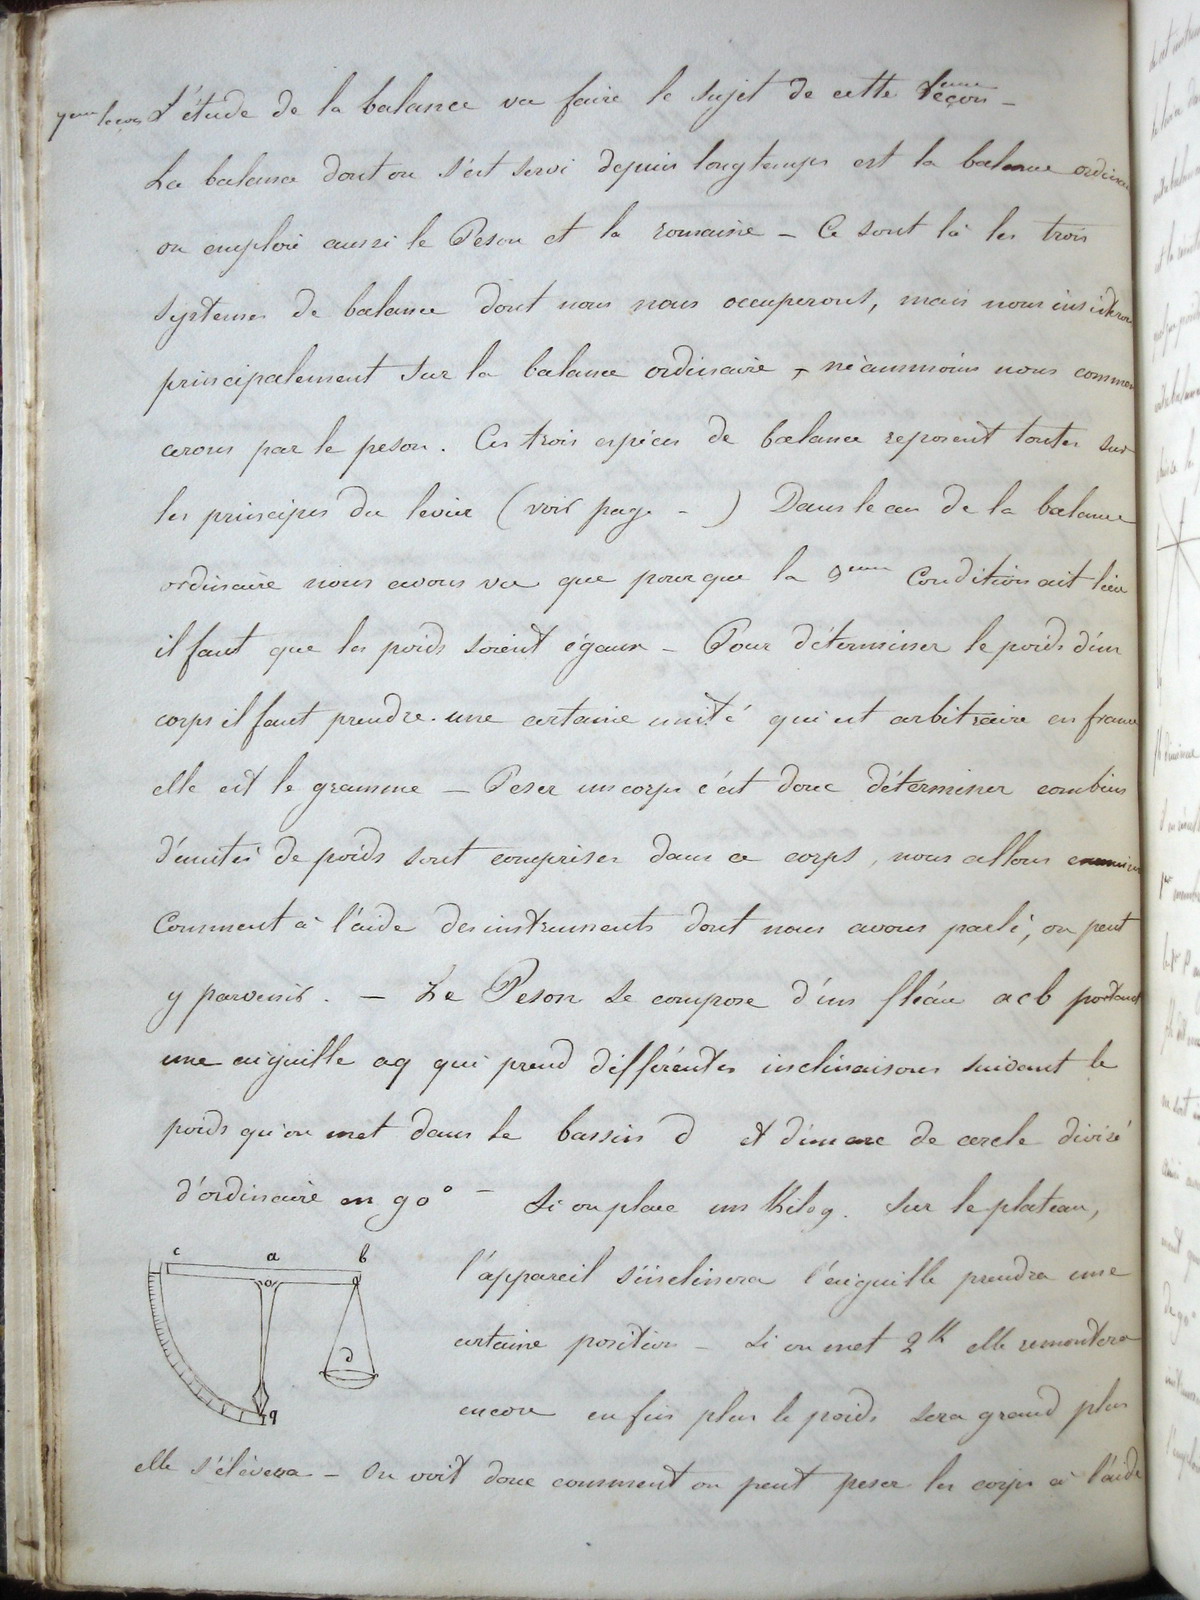 7eme leçon L'étude de la balance va faire le sujet de cette leçon –
La balance dont on s'est servi depuis longtemps est la balance ordinaire
on emploie aussi le Peson et la romaine – Ce sont là les trois
systemes de balance dont nous nous occuperons, mais nous insisterons
principalement sur la balance ordinaire, néanmoins nous commen
cerons par le peson. Ces trois espèces de balance reposent toutes sur
les principes du levier (voir page - ) Dans le cas de la balance
ordinaire nous avons vu que pour que la condition ait lieu
il faut que les poids soient égaux – Pour déterminer le poids d'un
corps il faut prendre une certaine unité qui est arbitraire en france
elle est le gramme – Peser un corps c'est donc déterminer combien
d'unités de poids sont comprises dans ce corps, nous allons
Comment à l'aide des instruments dont nous avons parlé, on peut
y parvenir. – Le Peson se compose d'un fléau acb portant
une aiguille aq qui prend différentes inclinaisons suivant le
poids qu'on met dans le bassin d et d'un arc de cercle divisé
d'ordinaire en 90° – Si on place un Kilog. sur le plateau,
c a b
l'appareil s'inclinera l'aiguille prendra une
certaine position – Si on met 2k elle remontera
d
encore enfin plus le poids sera grand plus
q
elle s'élèvera – On voit donc comment on peut peser les corps à l'aide